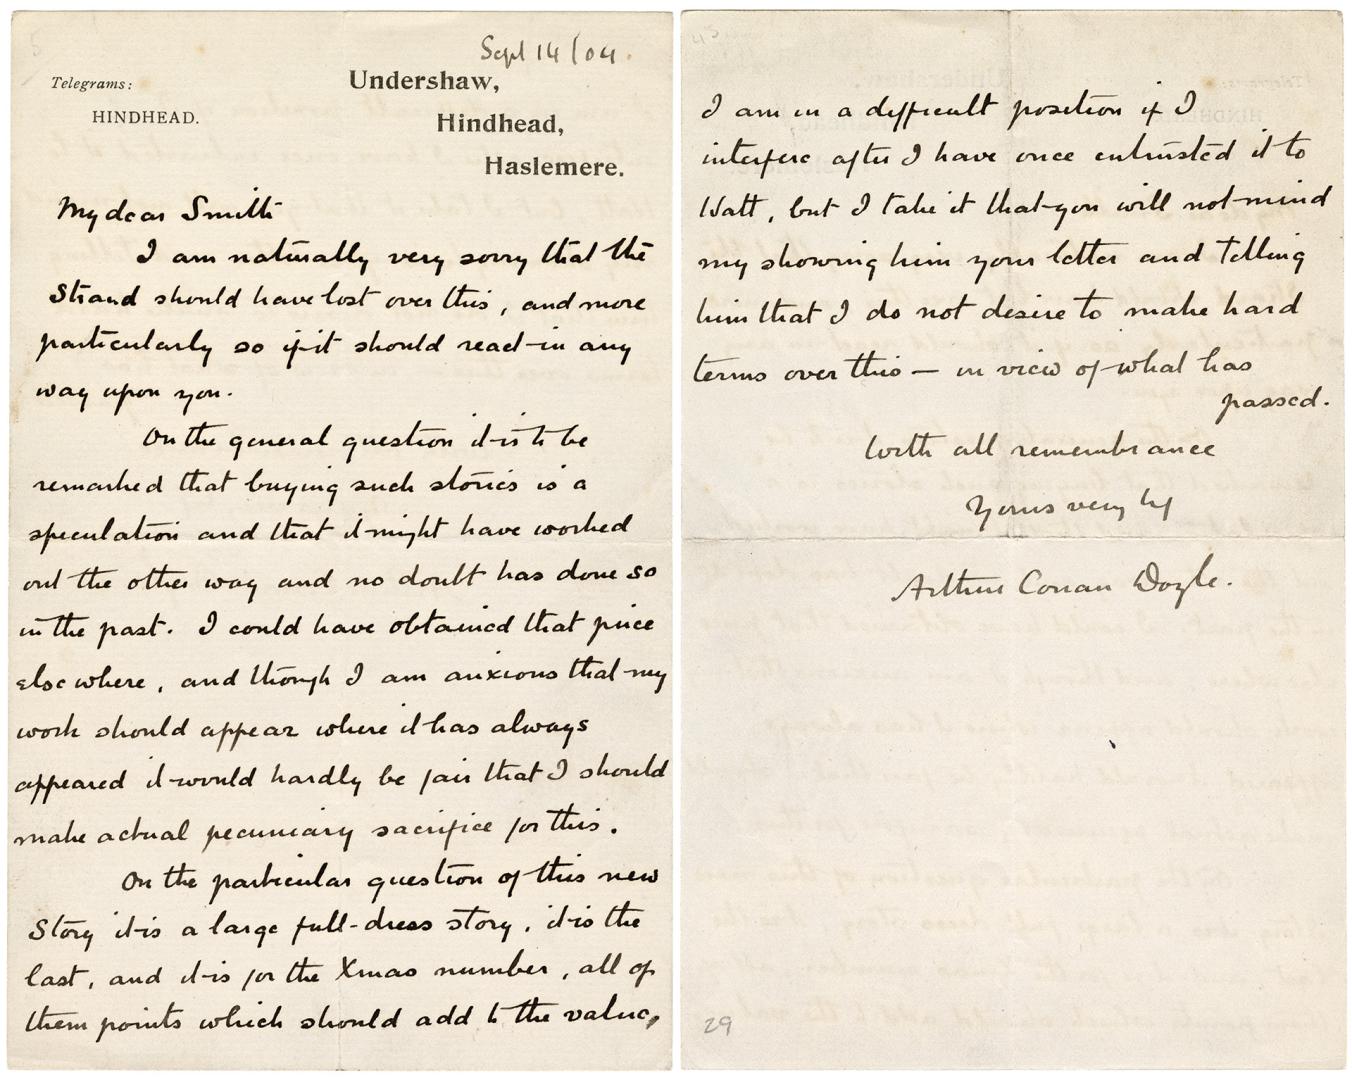 Sept 14/04.
Telegrams:
HINDHEAD.
Undershaw,
Hindhead,
Haslemere.
My dear Smith
I am naturally very sorry that the
Strand should have lost over this, and more
particularly so if it should react in any
way upon you.
On the general question it is to be
remarked that buying such stories is a
speculation and that it might have worked
out the other way and no doubt has done so
in the past. I could have obtained that price
elsewhere, and though I am anxious that my
work should appear where it has always
appeared it would hardly be fair that I should
make actual pecuniary sacrifice for this.
On the particular question of this new
Story it is a large full-dress story, it is the
last, and it is for the Xmas number, all of
them points which should add to the value,
I am in a difficult position if I
interfere after I have once entrusted it to
Watt, but I take it that you will not mind
my showing him your letter and telling
him that I do not desire to make hard
terms over this — in view of what has
passed.
With all remembrance
Yours very ty
Arthur Conan Doyle.
29